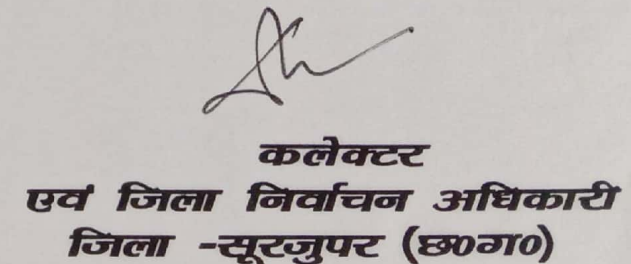 कलेक्टर
एवं जिला निर्वाचन अधिकारी
जिला -सूरजुपर (छ०ग०)